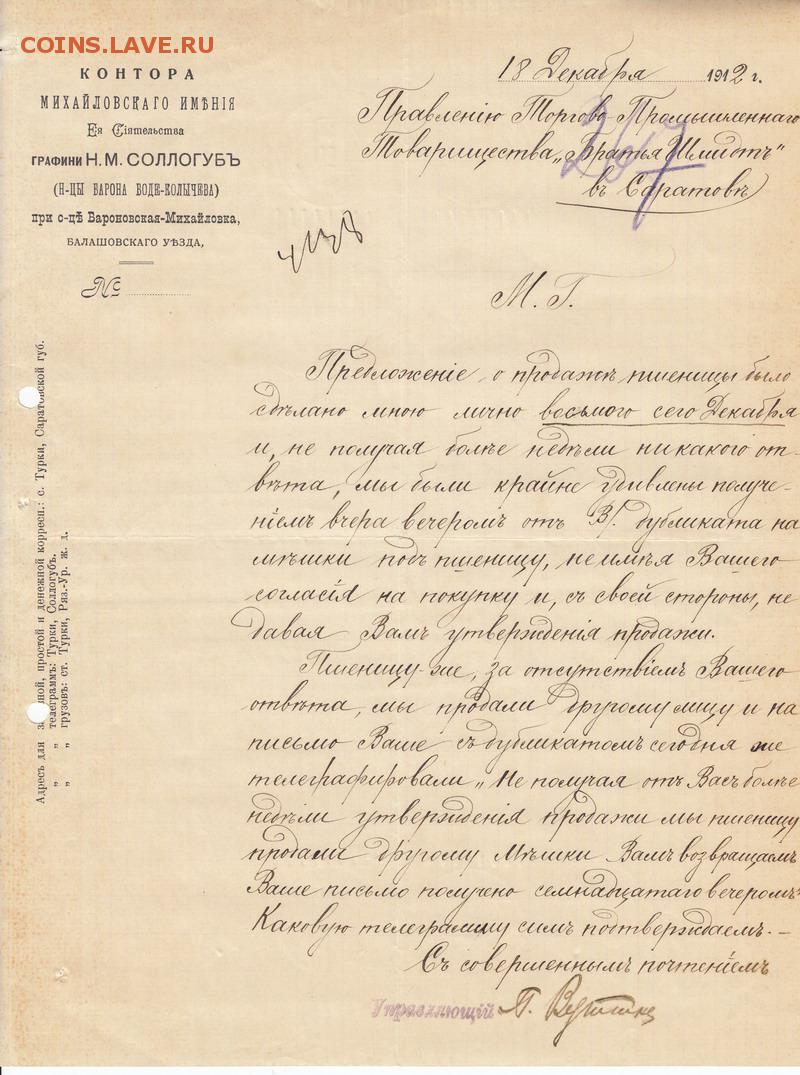 COINS.LAVE.RU
КОНТОРА
МИХАЙЛОВСКАГО ИМѢНІЯ
Ея Сіятельства
ГРАФИНИ Н. М. СОЛЛОГУБЪ
(Н-ЦЫ БАРОНА БОДЕ-КОЛЫЧЕВА)
при с-цѣ Бароновская-Михайловка,
БАЛАШОВСКАГО УѢЗДА,
№
18 Декабря 1912 г.
Правленію Торгово Промышленнаго
Товарищества „Братья Шмидтъ"
въ Саратовѣ
М. Г.
Предложеніе о продажѣ пшеницы было
сдѣлано мною лично восьмого сего Декабря
и, не получая болѣе недѣли никакого от-
вѣта, мы были крайне удивлены получе-
ніемъ вчера вечеромъ отъ В/. дубликата на
мѣшки подъ пшеницу, не имѣя Вашего
согласія на покупку и, съ своей стороны, не
давая Вамъ утвержденія продажи.
Пшеницу-же, за отсутствіемъ Вашего
отвѣта, мы продали другому лицу и на
письмо Ваше съ дубликатомъ сегодня же
телеграфировали „Не получая отъ Васъ болѣе
недѣли утвержденія продажи мы пшеницу
продали другому Мѣшки Вамъ возвращаемъ
Ваше письмо получено семнадцатаго вечеромъ"
Каковую телеграмму симъ подтверждаемъ.-
Съ совершеннымъ почтеніемъ
Управляющій П.
Адресъ для з ной, простой и денежной корресп.: с. Турки, Саратовской губ.
„ „ телеграммъ: Турки, Соллогубъ.
„ „ грузовъ: ст. Турки, Ряз.-Ур. ж. д.